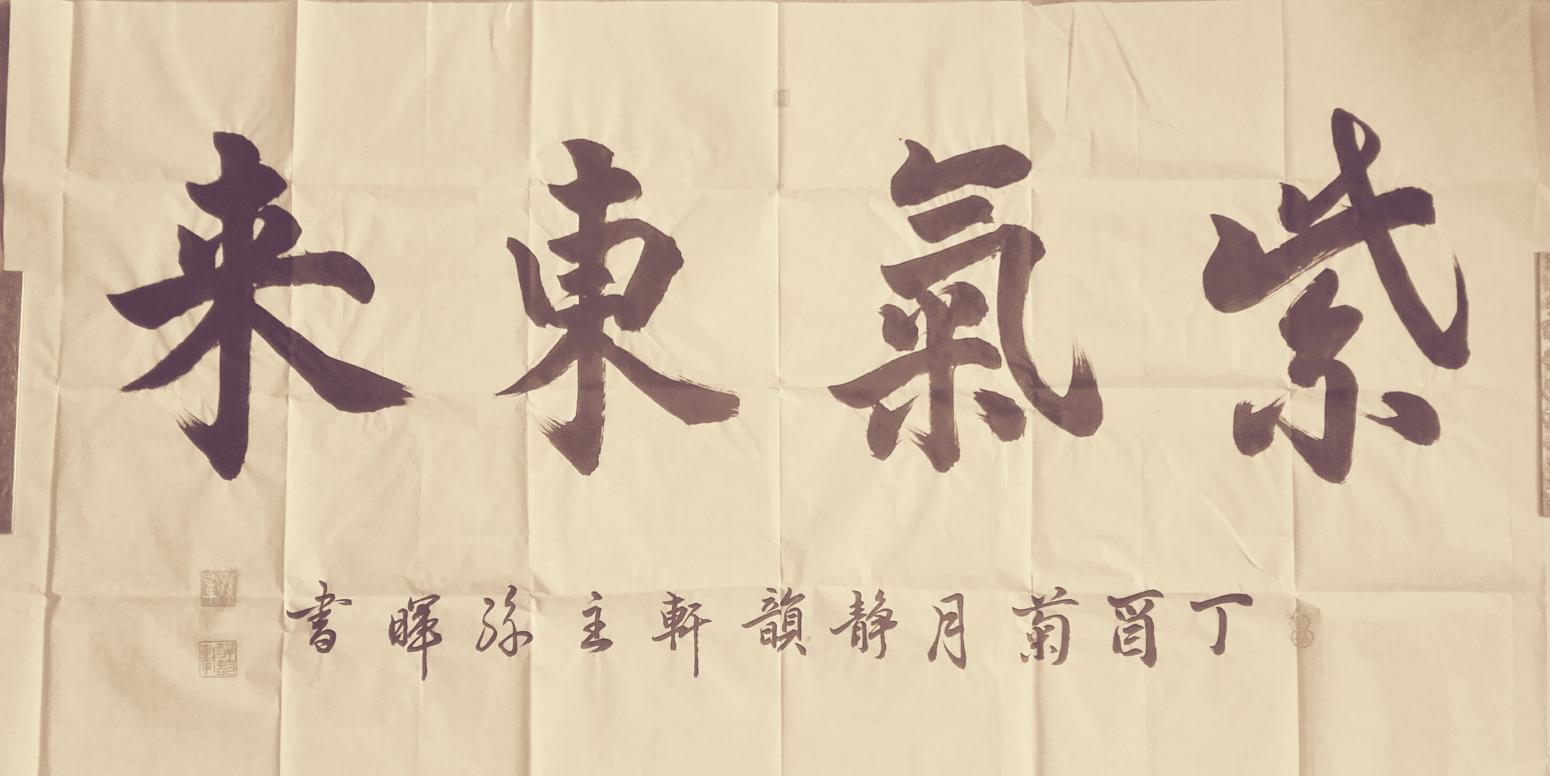 紫氣東来
丁酉菊月靜韻軒主孫暉書